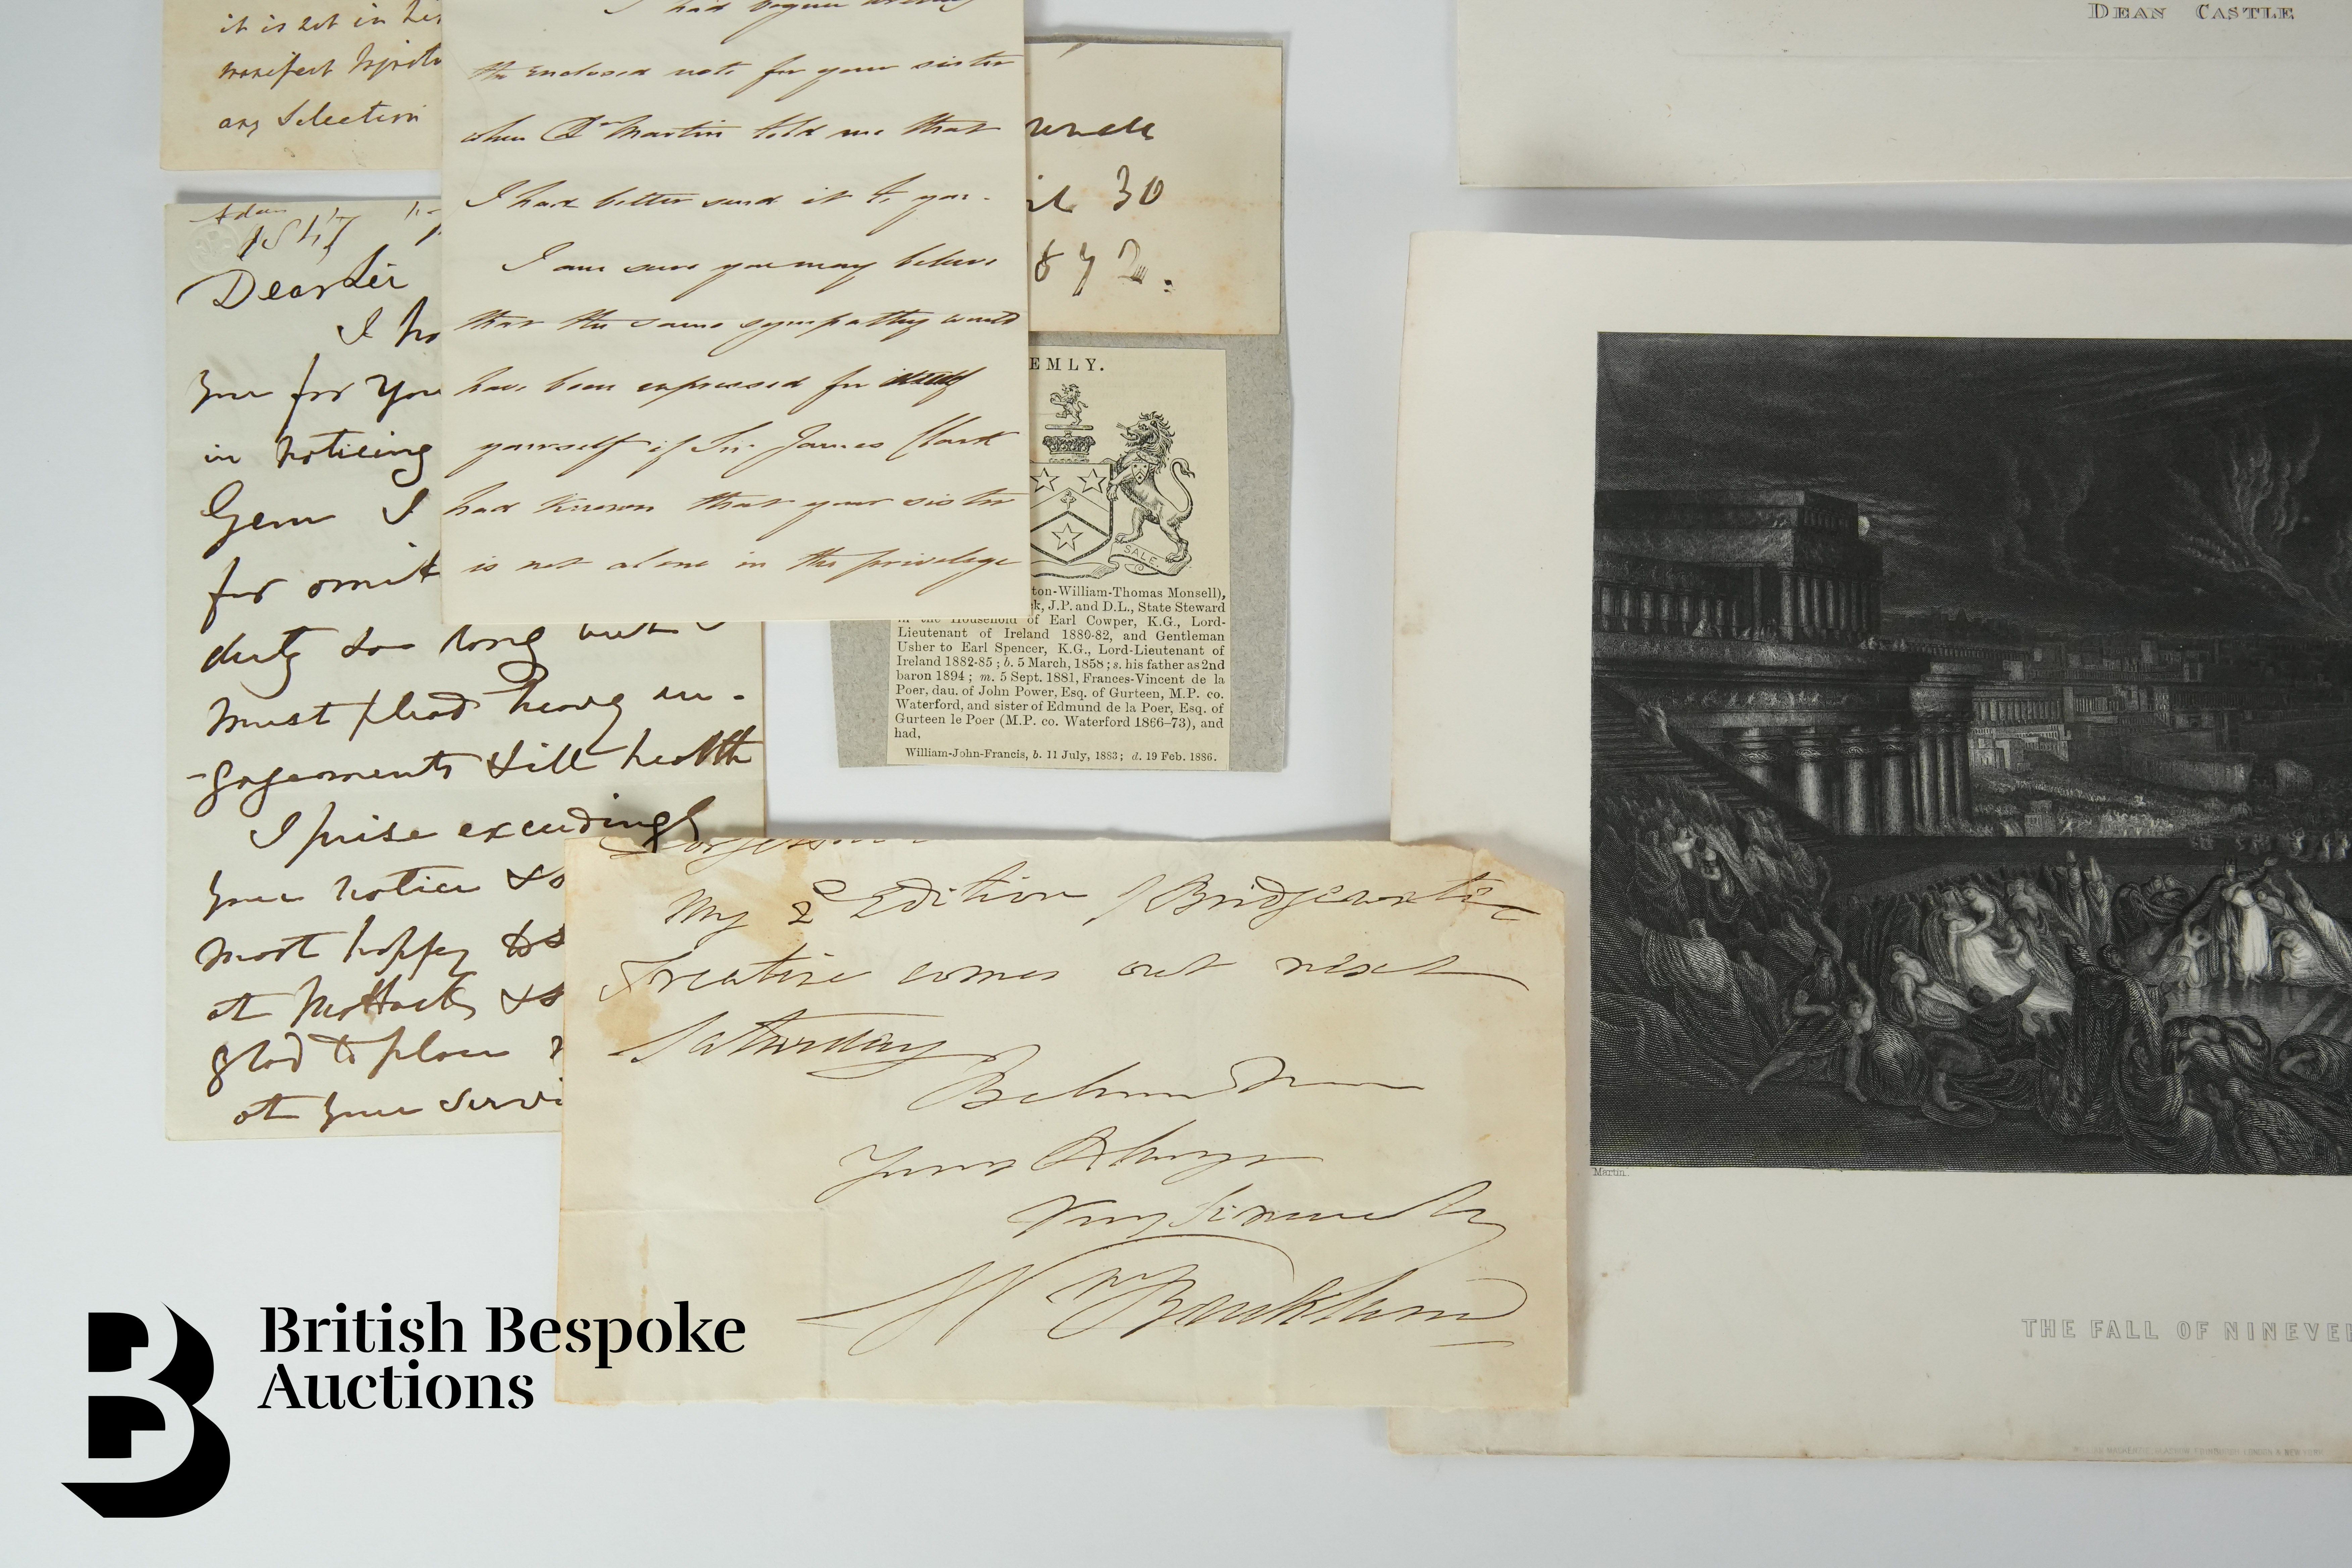 it is not in his
manifest
any Selection
I had begun writing
the enclosed note for your sister
when Dr Martin told me that
I had better send it to you.
I am sure you may believe
that the same sympathy would
have been expressed for
yourself if Sir James Clark
had known that your sister
is not alone in the privilege
il 30
1872.
EMLY.
SALE.
ton-William-Thomas Monsell),
k, J.P. and D.L., State Steward
in the Household of Earl Cowper, K.G., Lord-
Lieutenant of Ireland 1880-82, and Gentleman
Usher to Earl Spencer, K.G., Lord-Lieutenant of
Ireland 1882-85 ; b. 5 March, 1858 ; s. his father as 2nd
baron 1894 ; m. 5 Sept. 1881, Frances-Vincent de la
Poer, dau. of John Power, Esq. of Gurteen, M.P. co.
Waterford, and sister of Edmund de la Poer, Esq. of
Gurteen le Poer (M.P. co. Waterford 1866–73), and
had,
William-John-Francis, b. 11 July, 1883 ; d. 19 Feb. 1886.
1847
Dear Sir
I ho
you for you
in noticing
Gem I
for omit
duty so long but I
must plead heavy en-
-gagements & ill health
I prise exceedingly
your notice & so
most happy to s
at & s
glad to place
at your servi
My 2d Edition of Bridgewater
Treatise comes out next
Saturday
Believe me
Yours Always
Very Sincerely
Wm Buckland
DEAN CASTLE
Martin.
THE FALL OF NINEVEH
British Bespoke
Auctions